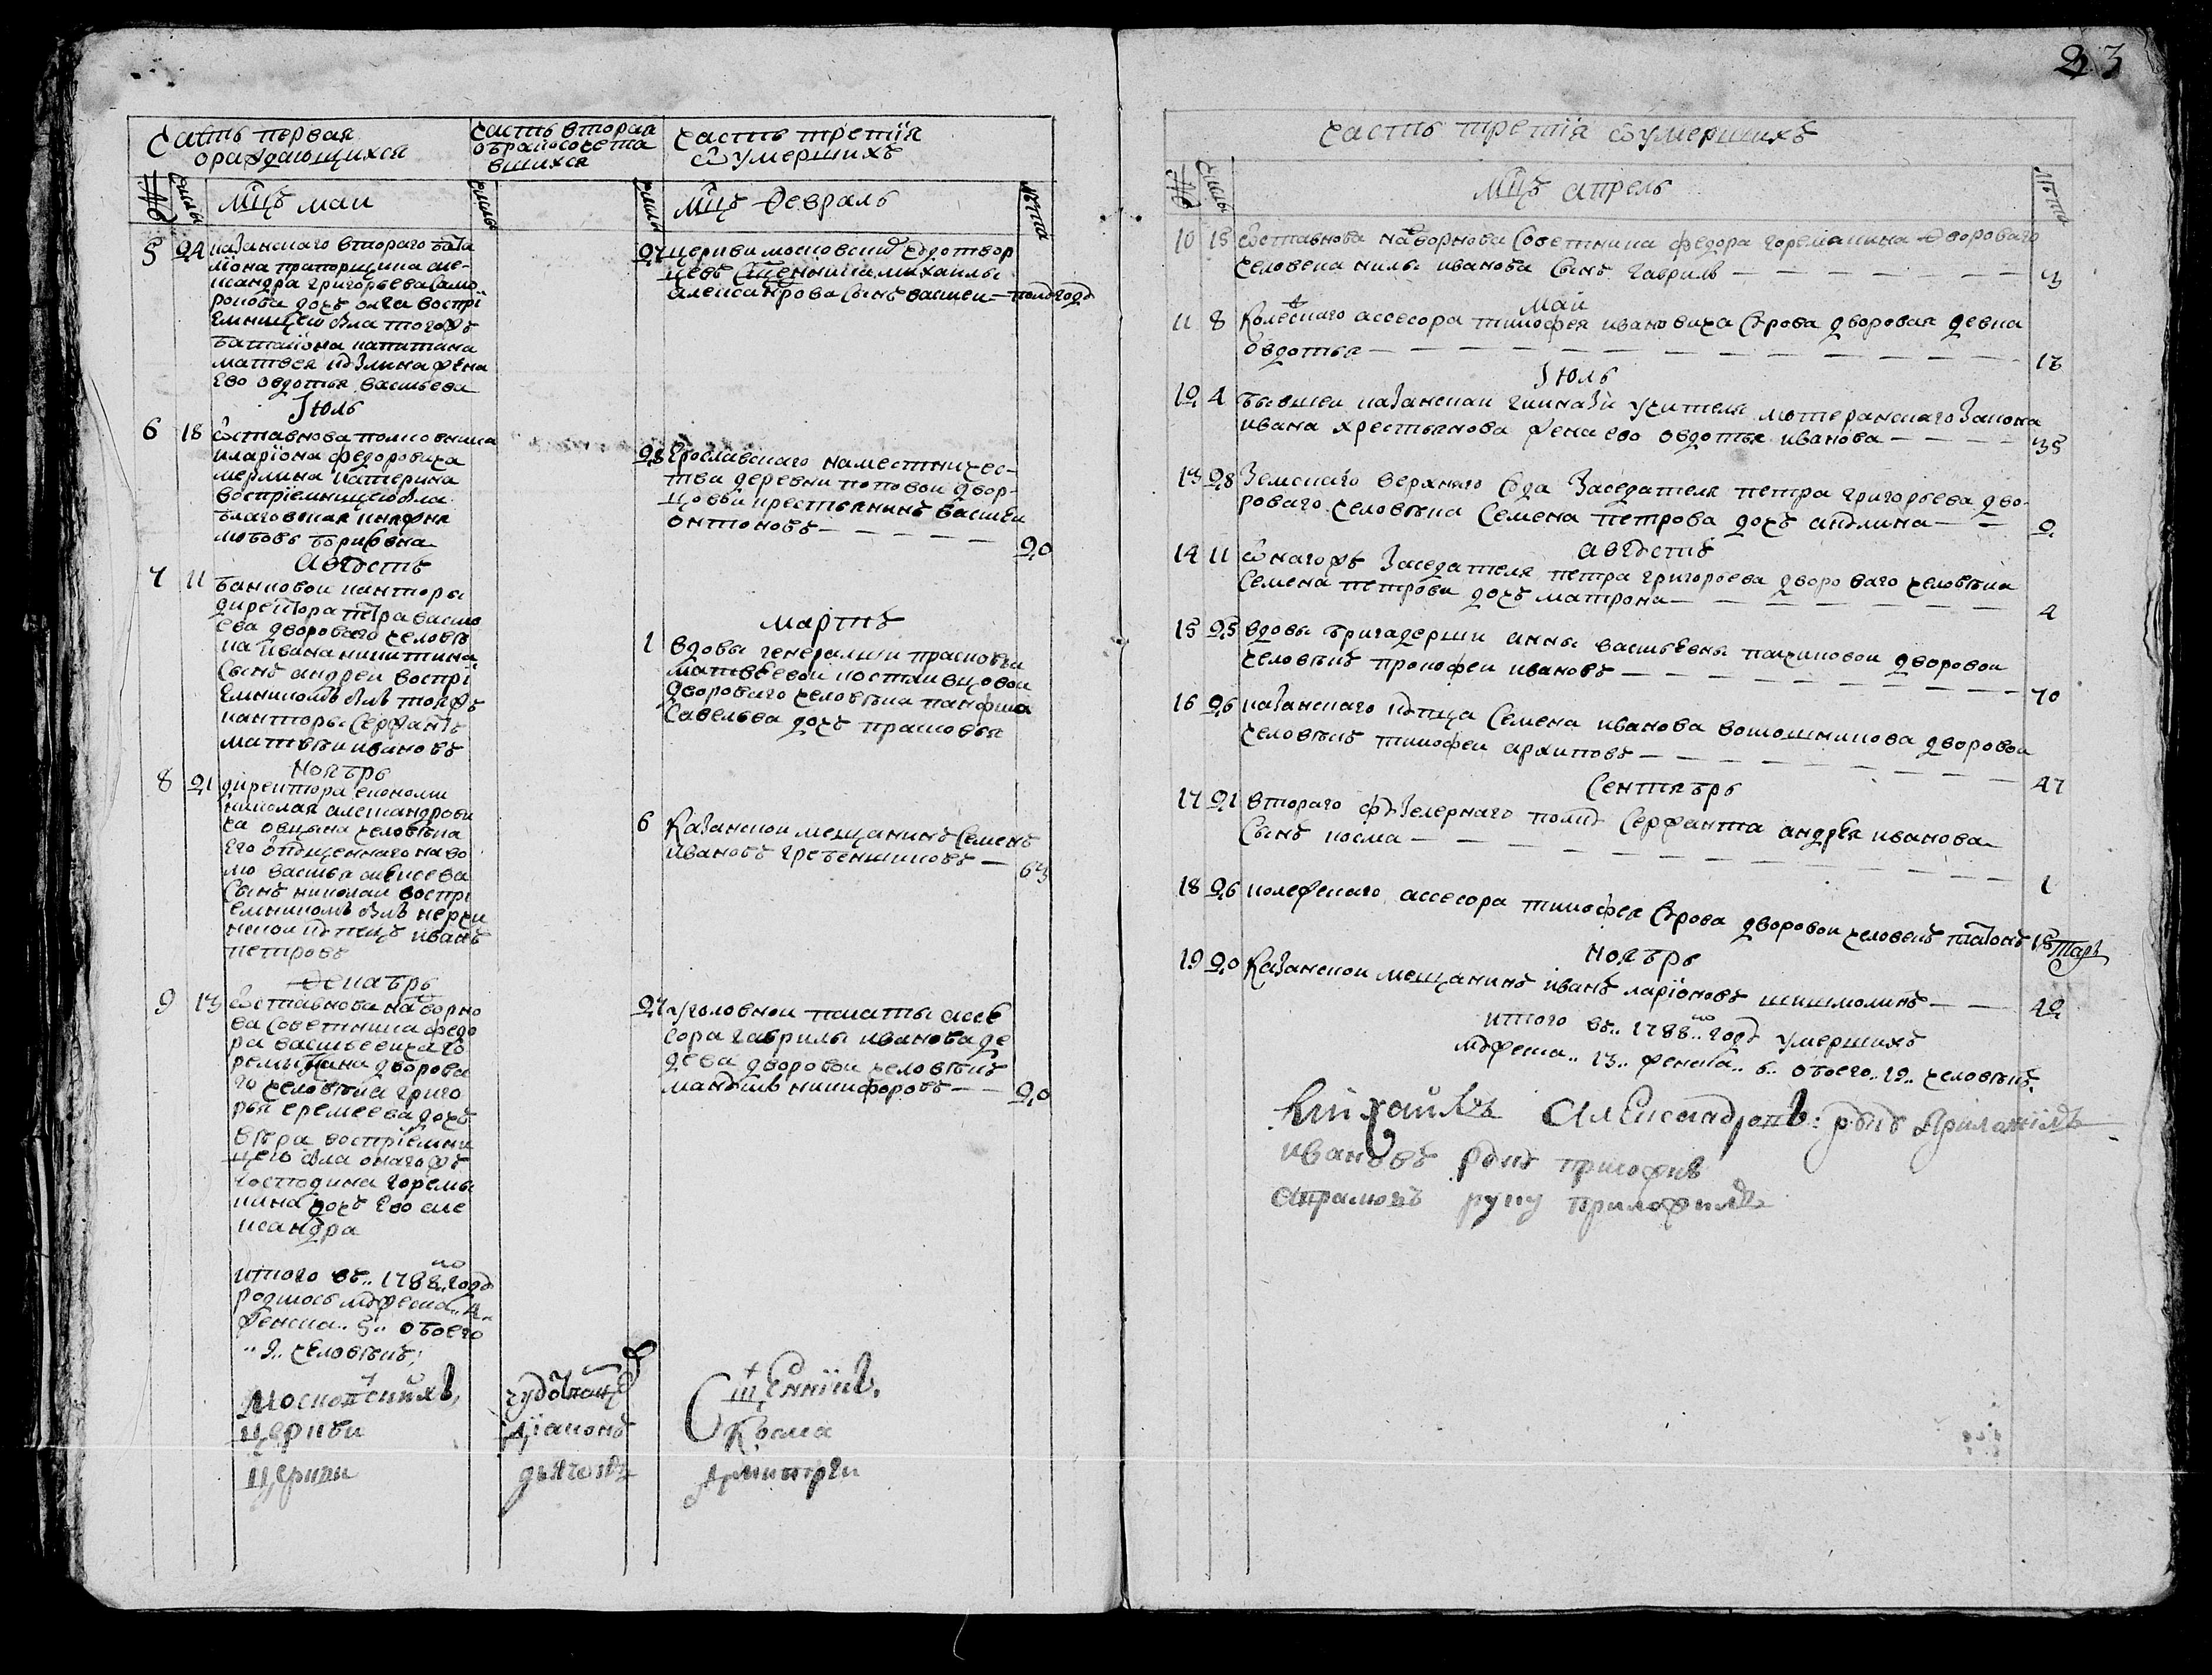 23
Часть первая
ораждающихся
№
числы
мцъ маи
5 24 казанскаго втораго бата
лїона прапорщика але-
ксандра григорьева само
дочь олга воспрї
емницею была тогожъ
баталїона капитана
матвея жена
ево овдотья васильева
Июль
6 18 ѿставнова полковника
иларїона федоровича
мерлина катерина
воспрїемницею была
благовѣрная княжна
любовь борисовна
Августъ
7 11 банковои канторы
директора петра василь
ева двороваго человѣ
ка ивана никитина
сынъ андреи воспрї
емникомъ былъ тоежъ
канторы сержантъ
матвѣи ивановъ
Ноябрь
8 21 директора економии
николая александрови
ча человѣка
его отпущеннаго на во
лю василья алексеева
сынъ николаи воспрї
емникомъ былъ
купецъ иванъ
петровъ
Декабрь
9 13 ѿставнова надворно
ва советника федо
ра васильевича го
ремыкина дворова
го человѣка григо
рья еремеева дочь
вѣра воспрїемни
цею была онагожъ
господина горемы
кина дочь ево але
ксандра
итого въ 1788мъ году
родилось мужеска 4
женска 5 обоего
9 человѣкъ
часть вторая
обракосочета
вшихся
числы
часть третїя
ѿумершихъ
числы
мцъ февраль
лѣта
27 церкви московски чудотвор
цевъ священника михаилы
александрова сынъ василеи — полгода
28 Ерославскаго наместничес-
тва деревни поповои двор-
цовои крестьянинъ василеи
антоновъ — 20
мартъ
1 вдовы генералши прасковьи
матвѣевои
двороваго человѣка панфила
савельева дочь прасковья
6 Казанскои мещанинъ семенъ
ивановъ гребенщиковъ — 63
27 уголовнои палаты асе
сора гаврилы иванова де
дева дворовои человѣкъ
мануилъ никифоровъ — 20
Московскихъ чудотворцевъ Священникъ
церкви дїаконъ Косма
церкви дьячокъ Димитреи
часть третїя ѿумершихъ
№
числы
мцъ апрель
лѣта
10 15 ѿставнова надворнова советника федора горемыкина двороваго
человека нилы иванова сынъ гаврилъ — 3
май
11 8 Колежскаго ассесора тимофея ивановича дворовая девка
овдотья — 18
Июль
12 4 бывшеи казанскаи гимназїи учителя лютеранскаго закона
ивана хрестьянова жена ево овдотья иванова — 35
13 28 Земскаго верхняго суда заседателя петра григорьева дво-
роваго человѣка семена петрова дочь акулина — 2
августъ
14 11 онагожъ заседателя петра григорьева двороваго человѣка
семена петрова дочь матрона — 4
15 25 вдовы бригадерши анны васильевны дворовои
человѣкъ прокофеи ивановъ — 70
16 26 казанскаго купца семена иванова дворовои
человѣкъ тимофеи архиповъ — 47
Сентябрь
17 21 втораго фузелернаго полку сержанта андрея иванова
сынъ косма — 1
18 26 колежскаго ассесора тимофея дворовои человекъ платонъ 15
Ноябрь
19 20 Казанскои мещанинъ иванъ ларїоновъ — 42
итого въ 1788мъ году умершихъ
мужеска 13 женска 6 обоего 19 человѣкъ
Михаилъ Александровъ руку приложилъ
ивановъ руку приложилъ
руку приложилъ